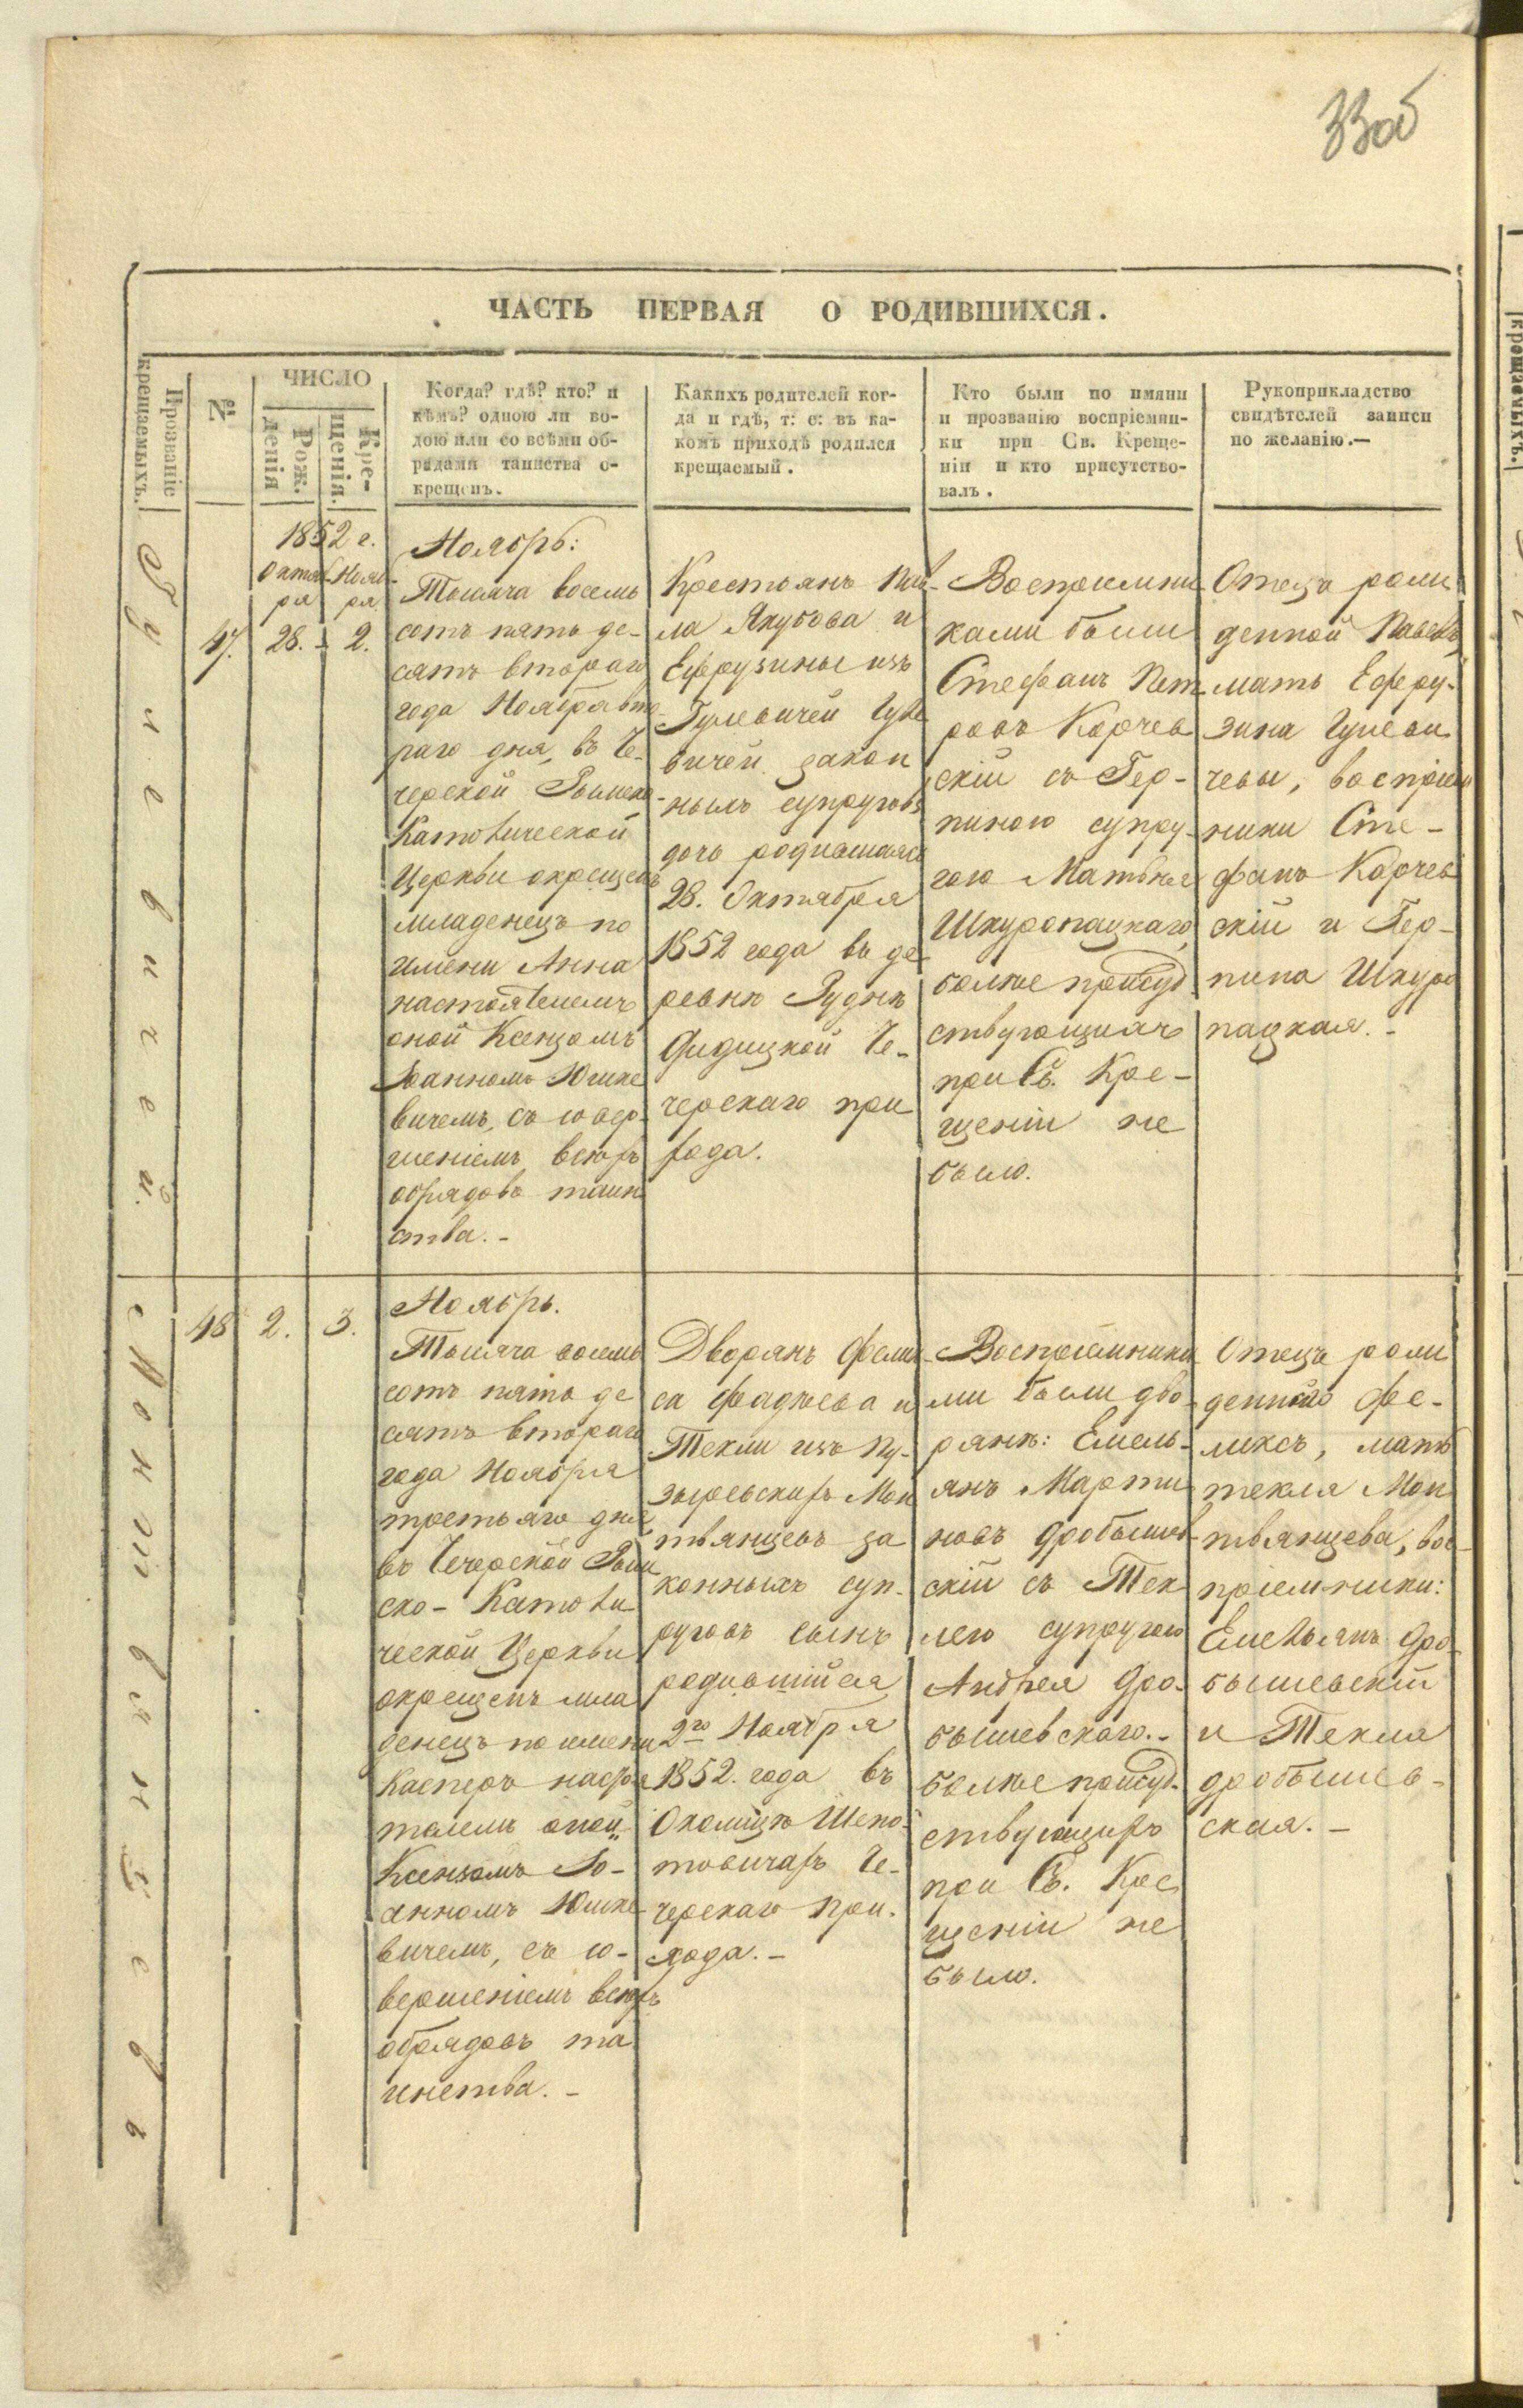 33об
ЧАСТЬ ПЕРВАЯ О РОДИВШИХСЯ.
Прозваніе
крещаемыхъ.
№
ЧИСЛО
Рож.
денія
Кре-
щенія.
Когда? гдѣ? кто? и
кѣмъ? одною ли во-
дою или со всѣми об-
рядами таинства о-
крещенъ.
Какихъ родителей ког-
да и гдѣ, т: е: въ ка-
комъ приходѣ родился
крещаемый.
Кто были по имяни
и прозванію воспріемни-
ки при Св. Креще-
ніи и кто присутство-
валъ.
Рукоприкладство
свидѣтелей записи
по желанію.—
Гулевичей.
1852 г.
Октяб
ря
Нояб-
ря
47.
28.
2.
Ноябрь:
Тысяча восемь
сотъ пять де-
сятъ втораго
года Ноября вто-
раго дня, въ Че-
черской Римско-
Католической
Церкви окрещенъ
младенецъ по
имени Анна
настоятелемъ
оной Ксендзомъ
Іоанномъ Юшке
вичемъ, съ совер-
шеніемъ всѣхъ
обрядовъ таин
ства.-
Крестьянъ Пав-
ла Якубова и
Ефрузины изъ
Гулевичей Гуле
вичей закон
ныхъ супруговъ
дочь родившаяся
28. Октября
1852 года въ де
ревнѣ Руднѣ
Дидицкой Че-
черскаго при
хода.
Воспріемни
ками были
Стефанъ Пет
ровъ Корчев
скій съ Гер-
пиною супру-
гою Матвѣя
Шкуропацкаго,
болѣе присуд
ствующихъ
при Св. Кре-
щеніи не
было.
Отецъ роми
денной Павелъ,
мать Ефру-
зина Гулеви
чевы, воспріем
ники Сте-
фанъ Корчев
скій и Гер-
пина Шкуро
пацкая.-
Монтвянцевъ
48
2.
3.
Ноябрь.
Тысяча восемь
сотъ пять де
сятъ втораго
года Ноября
третьяго дня
въ Чечерской Рим
ско- Католи
ческой Церкви
окрещенъ мла
денецъ по имени
Касперъ настоя
телемъ оной
Ксендзомъ Іо-
анномъ Юшке
вичемъ, съ со-
вершеніемъ всѣхъ
обрядовъ та
инства.-
Дворянъ Фелик
са Фадѣева и
Текли изъ Пу-
зыревскихъ Мон
твянцевъ за
конныхъ суп-
руговъ сынъ
родившійся
2го Ноября
1852. года въ
Околицѣ Шепо-
товичахъ Че-
черскаго при.
хода.-
Воспріемника
ми были дво-
рянѣ: Емель-
янъ Марти
новъ Дробышев
скій съ Тек
лею супругою
Андрея Дро-
бышевскаго.-
болѣе присуд-
ствующихъ
при Св. Кре
щеніи не
было.
Отецъ роми
деннаго Фе-
ликсъ, мать
Текля Мон
твянцева, вос-
пріемники:
Емельянъ Дро-
бышевскій
и Текля
Дробышев-
ская.-